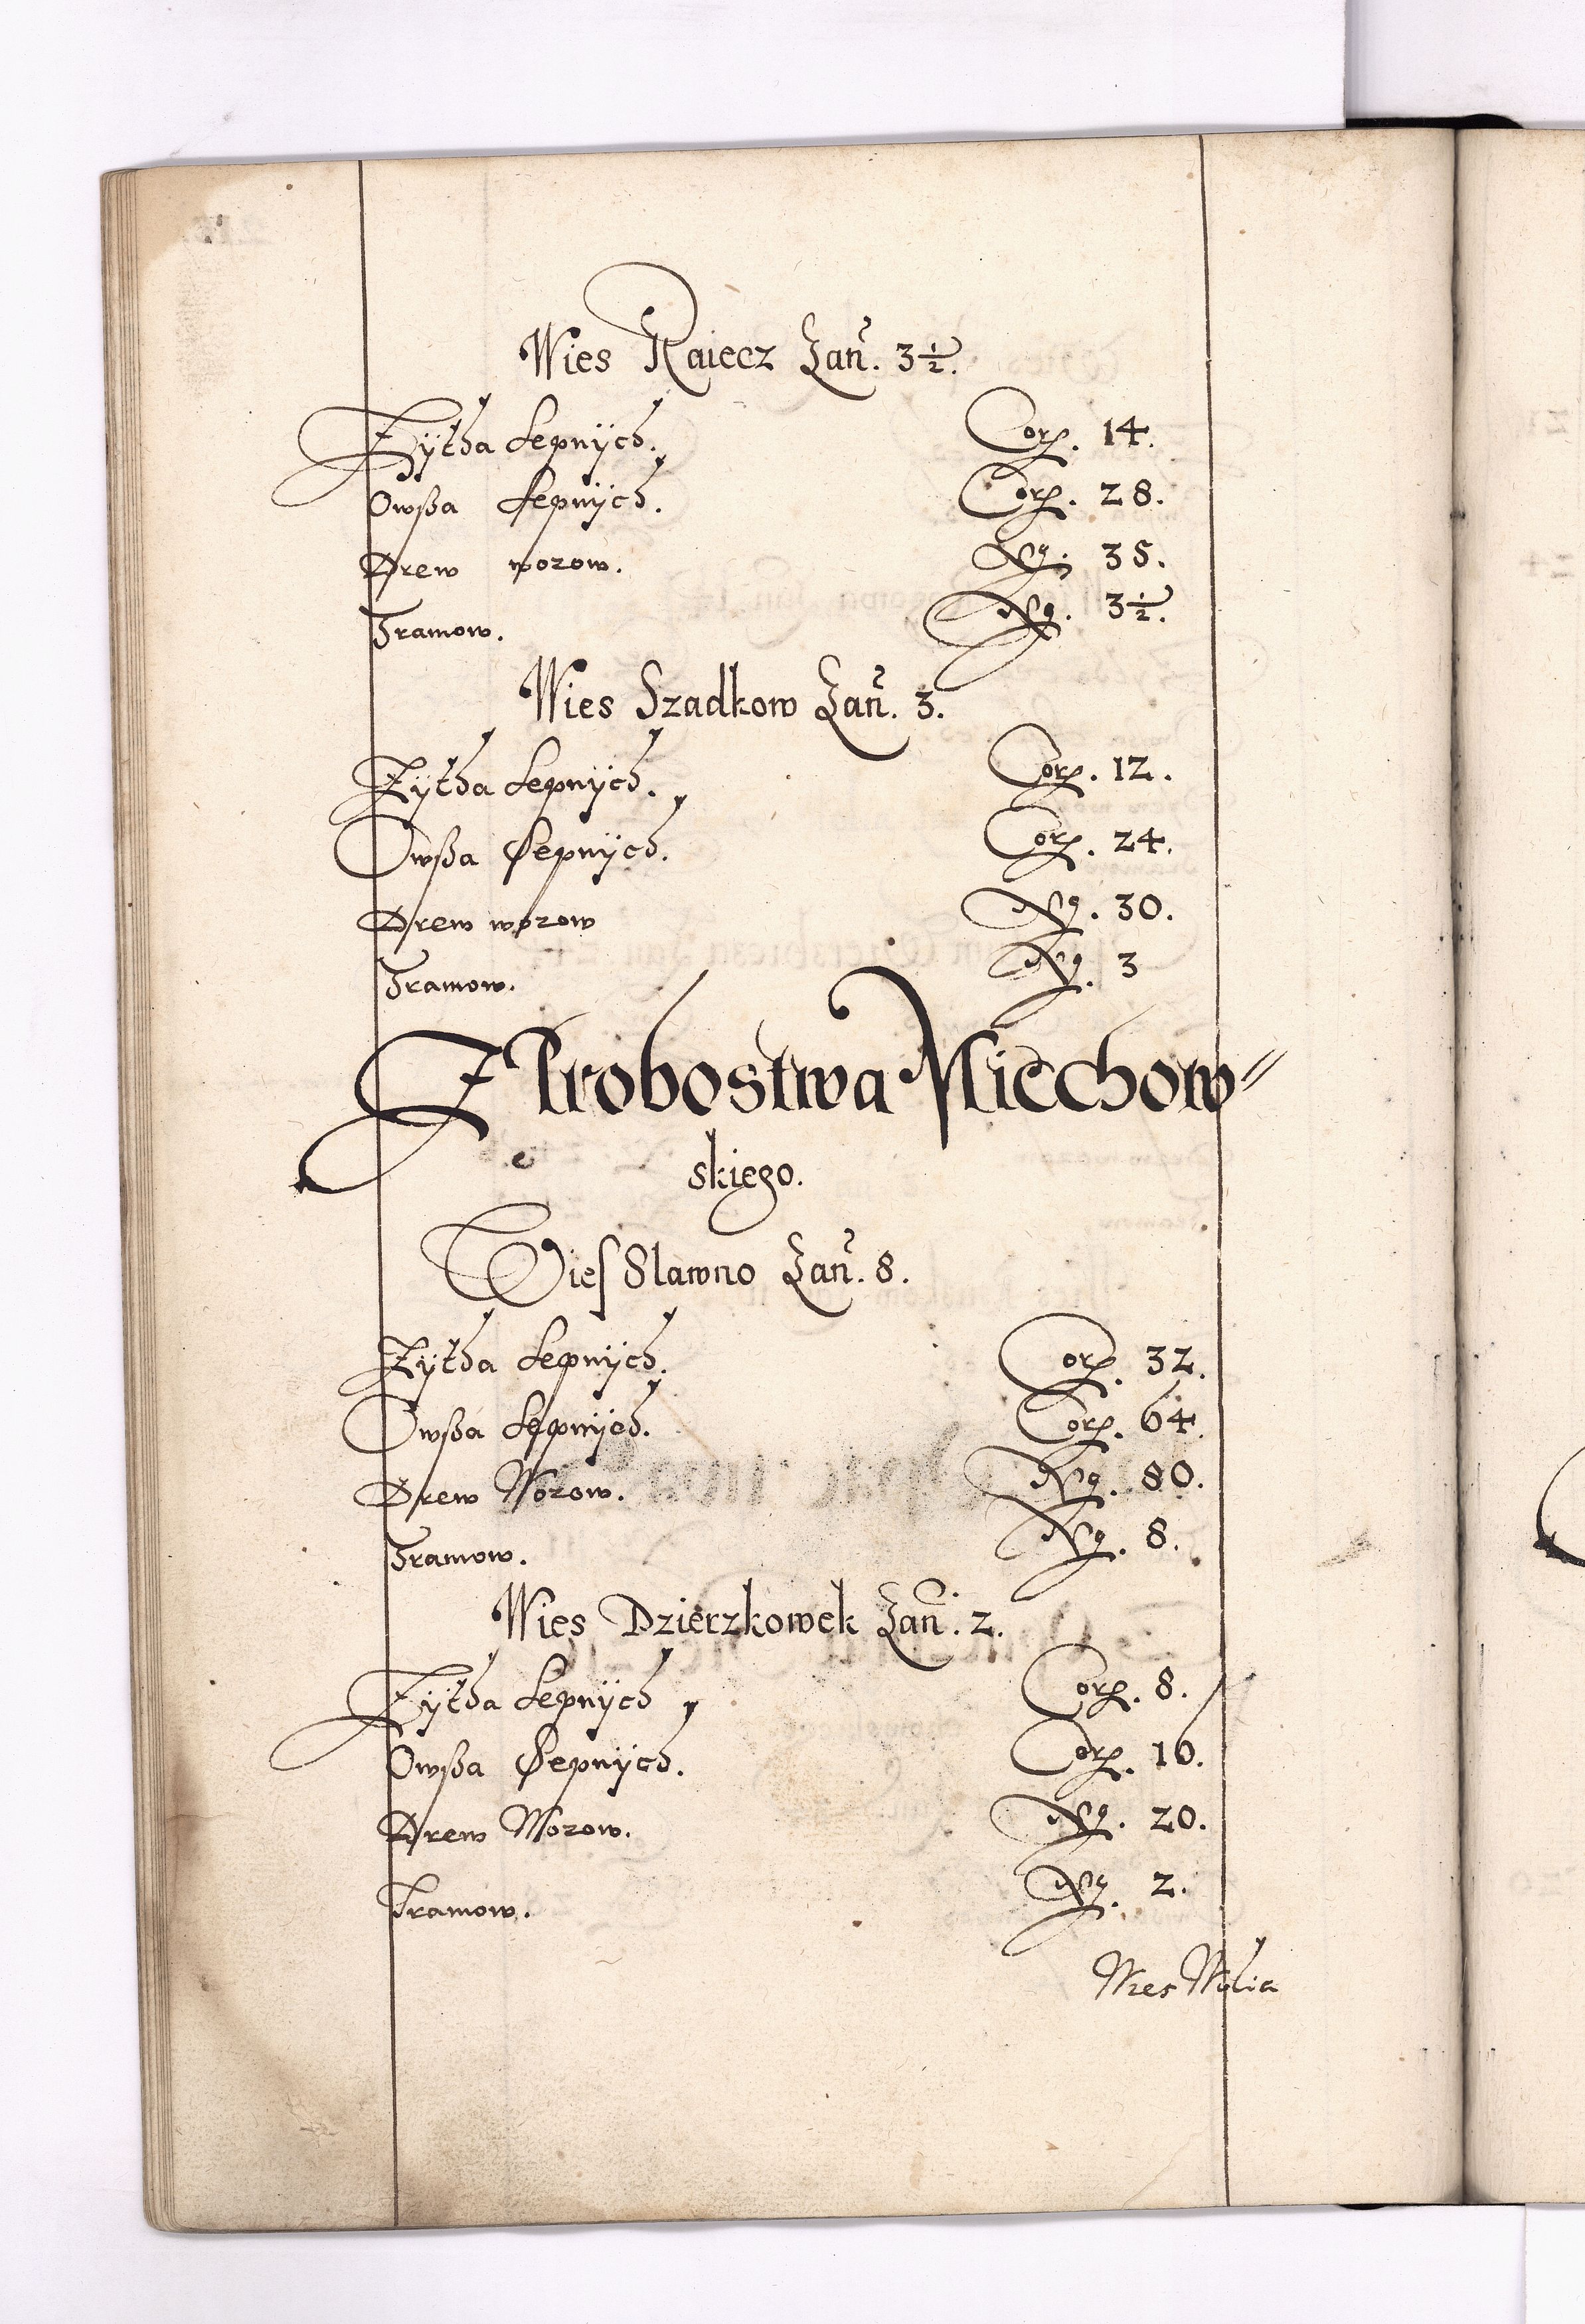 Wies Raiecz Łan. 3½.
Zÿtha Sepnÿch. Corp. 14.
Owßa Sepnÿch. Corp. 28.
Drew wozow. Ng. 35.
Tramow. Ng. 3½.
Wies Szadkow Łan. 3.
Zÿtha Sepnÿch. Corp. 12.
Owßa Sepnÿch. Corp. 24.
Drew wozow Ng. 30.
Tramow. Ng. 3
Z Probostwa Miechow=
skiego.
Wies Slawno Łan. 8.
Zÿtha Sepnÿch. Corp. 32.
Owßa Sepnÿch. Corp. 64.
Drew Wozow. Ng. 80.
Tramow. Ng. 8.
Wies Dzierzkowek Łan. 2.
Zÿtha Sepnÿch Corp. 8.
Owßa Sepnÿch. Corp. 16.
Drew Wozow. Ng. 20.
Tramow. Ng. 2.
Wies Wolia